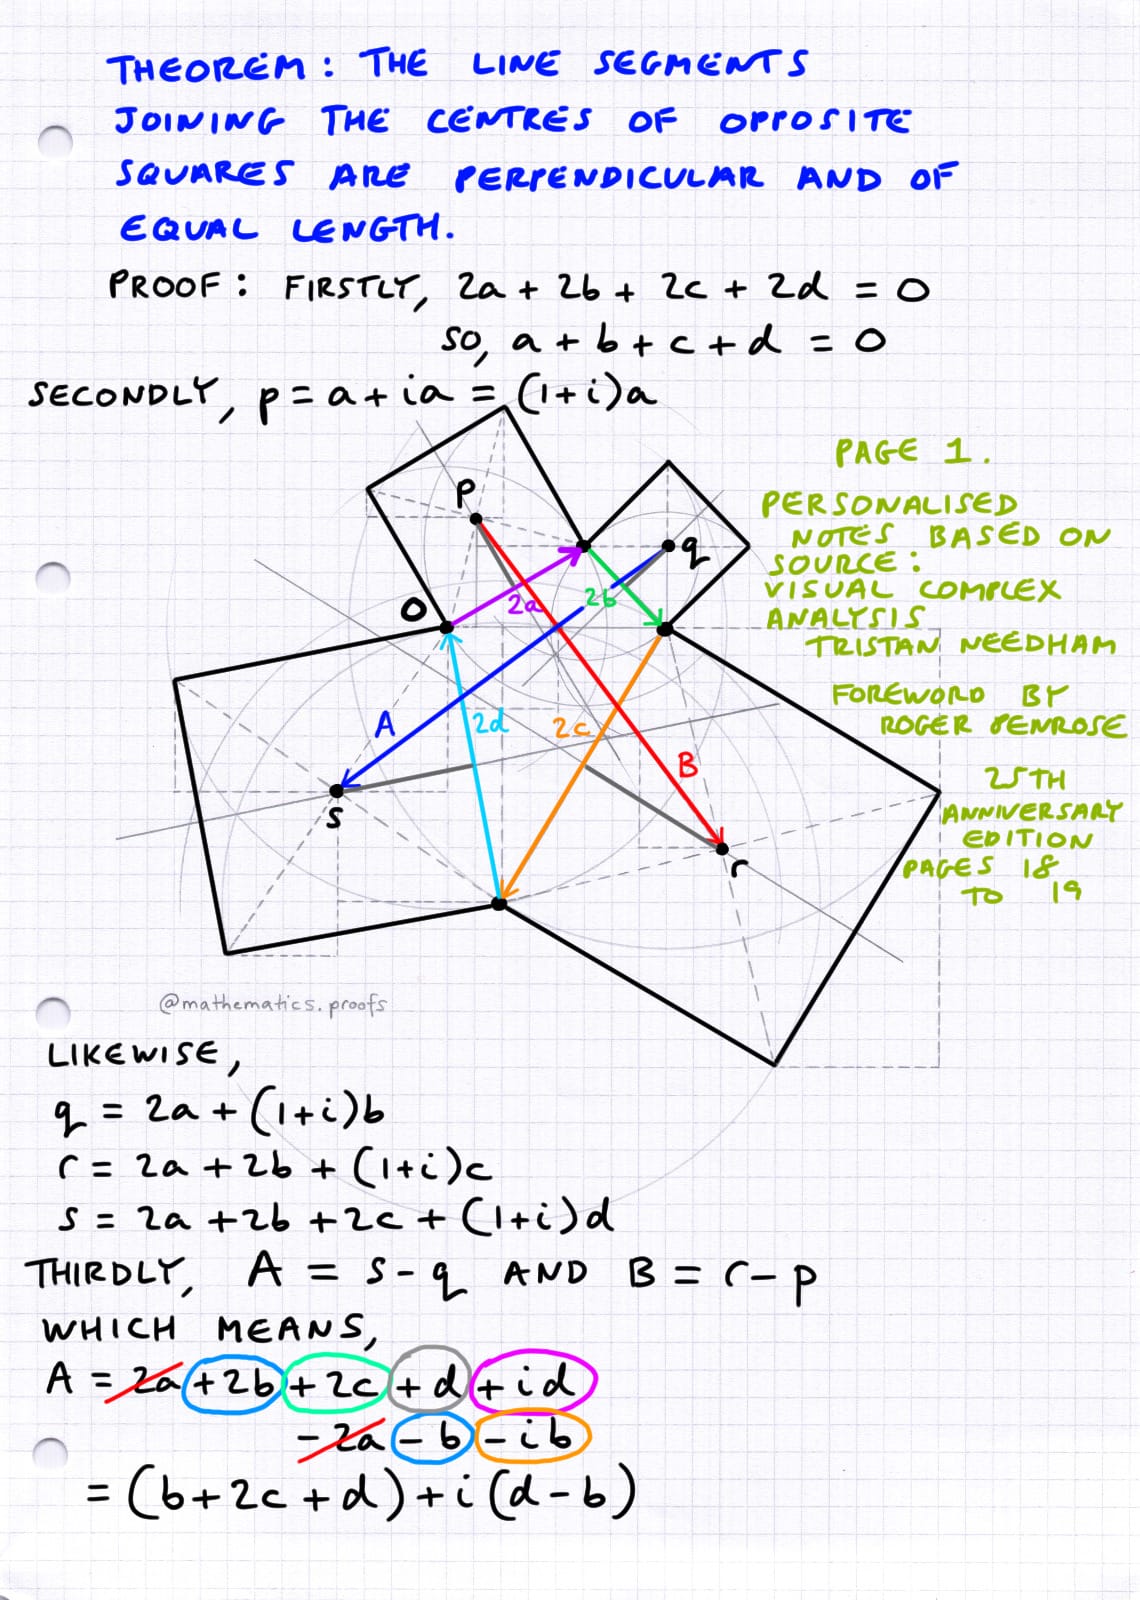 THEOREM: THE LINE SEGMENTS
JOINING THE CENTRES OF OPPOSITE
SQUARES ARE PERPENDICULAR AND OF
EQUAL LENGTH.
PROOF: FIRSTLY, 2a + 2b + 2c + 2d = 0
SO, a + b + c + d = 0
SECONDLY, p = a + ia = (1+i)a
PAGE 1.
PERSONALISED
NOTES BASED ON
SOURCE:
VISUAL COMPLEX
ANALYSIS
TRISTAN NEEDHAM
FOREWORD BY
ROGER PENROSE
25TH
ANNIVERSARY
EDITION
PAGES 18
TO 19
p
q
O
2a
2b
A
2d
2c
B
s
r
@mathematics.proofs
LIKEWISE,
q = 2a + (1+i)b
r = 2a + 2b + (1+i)c
s = 2a + 2b + 2c + (1+i)d
THIRDLY, A = s - q AND B = r - p
WHICH MEANS,
A = 2a + 2b + 2c + d + id
- 2a - b - ib
= (b + 2c + d) + i(d - b)